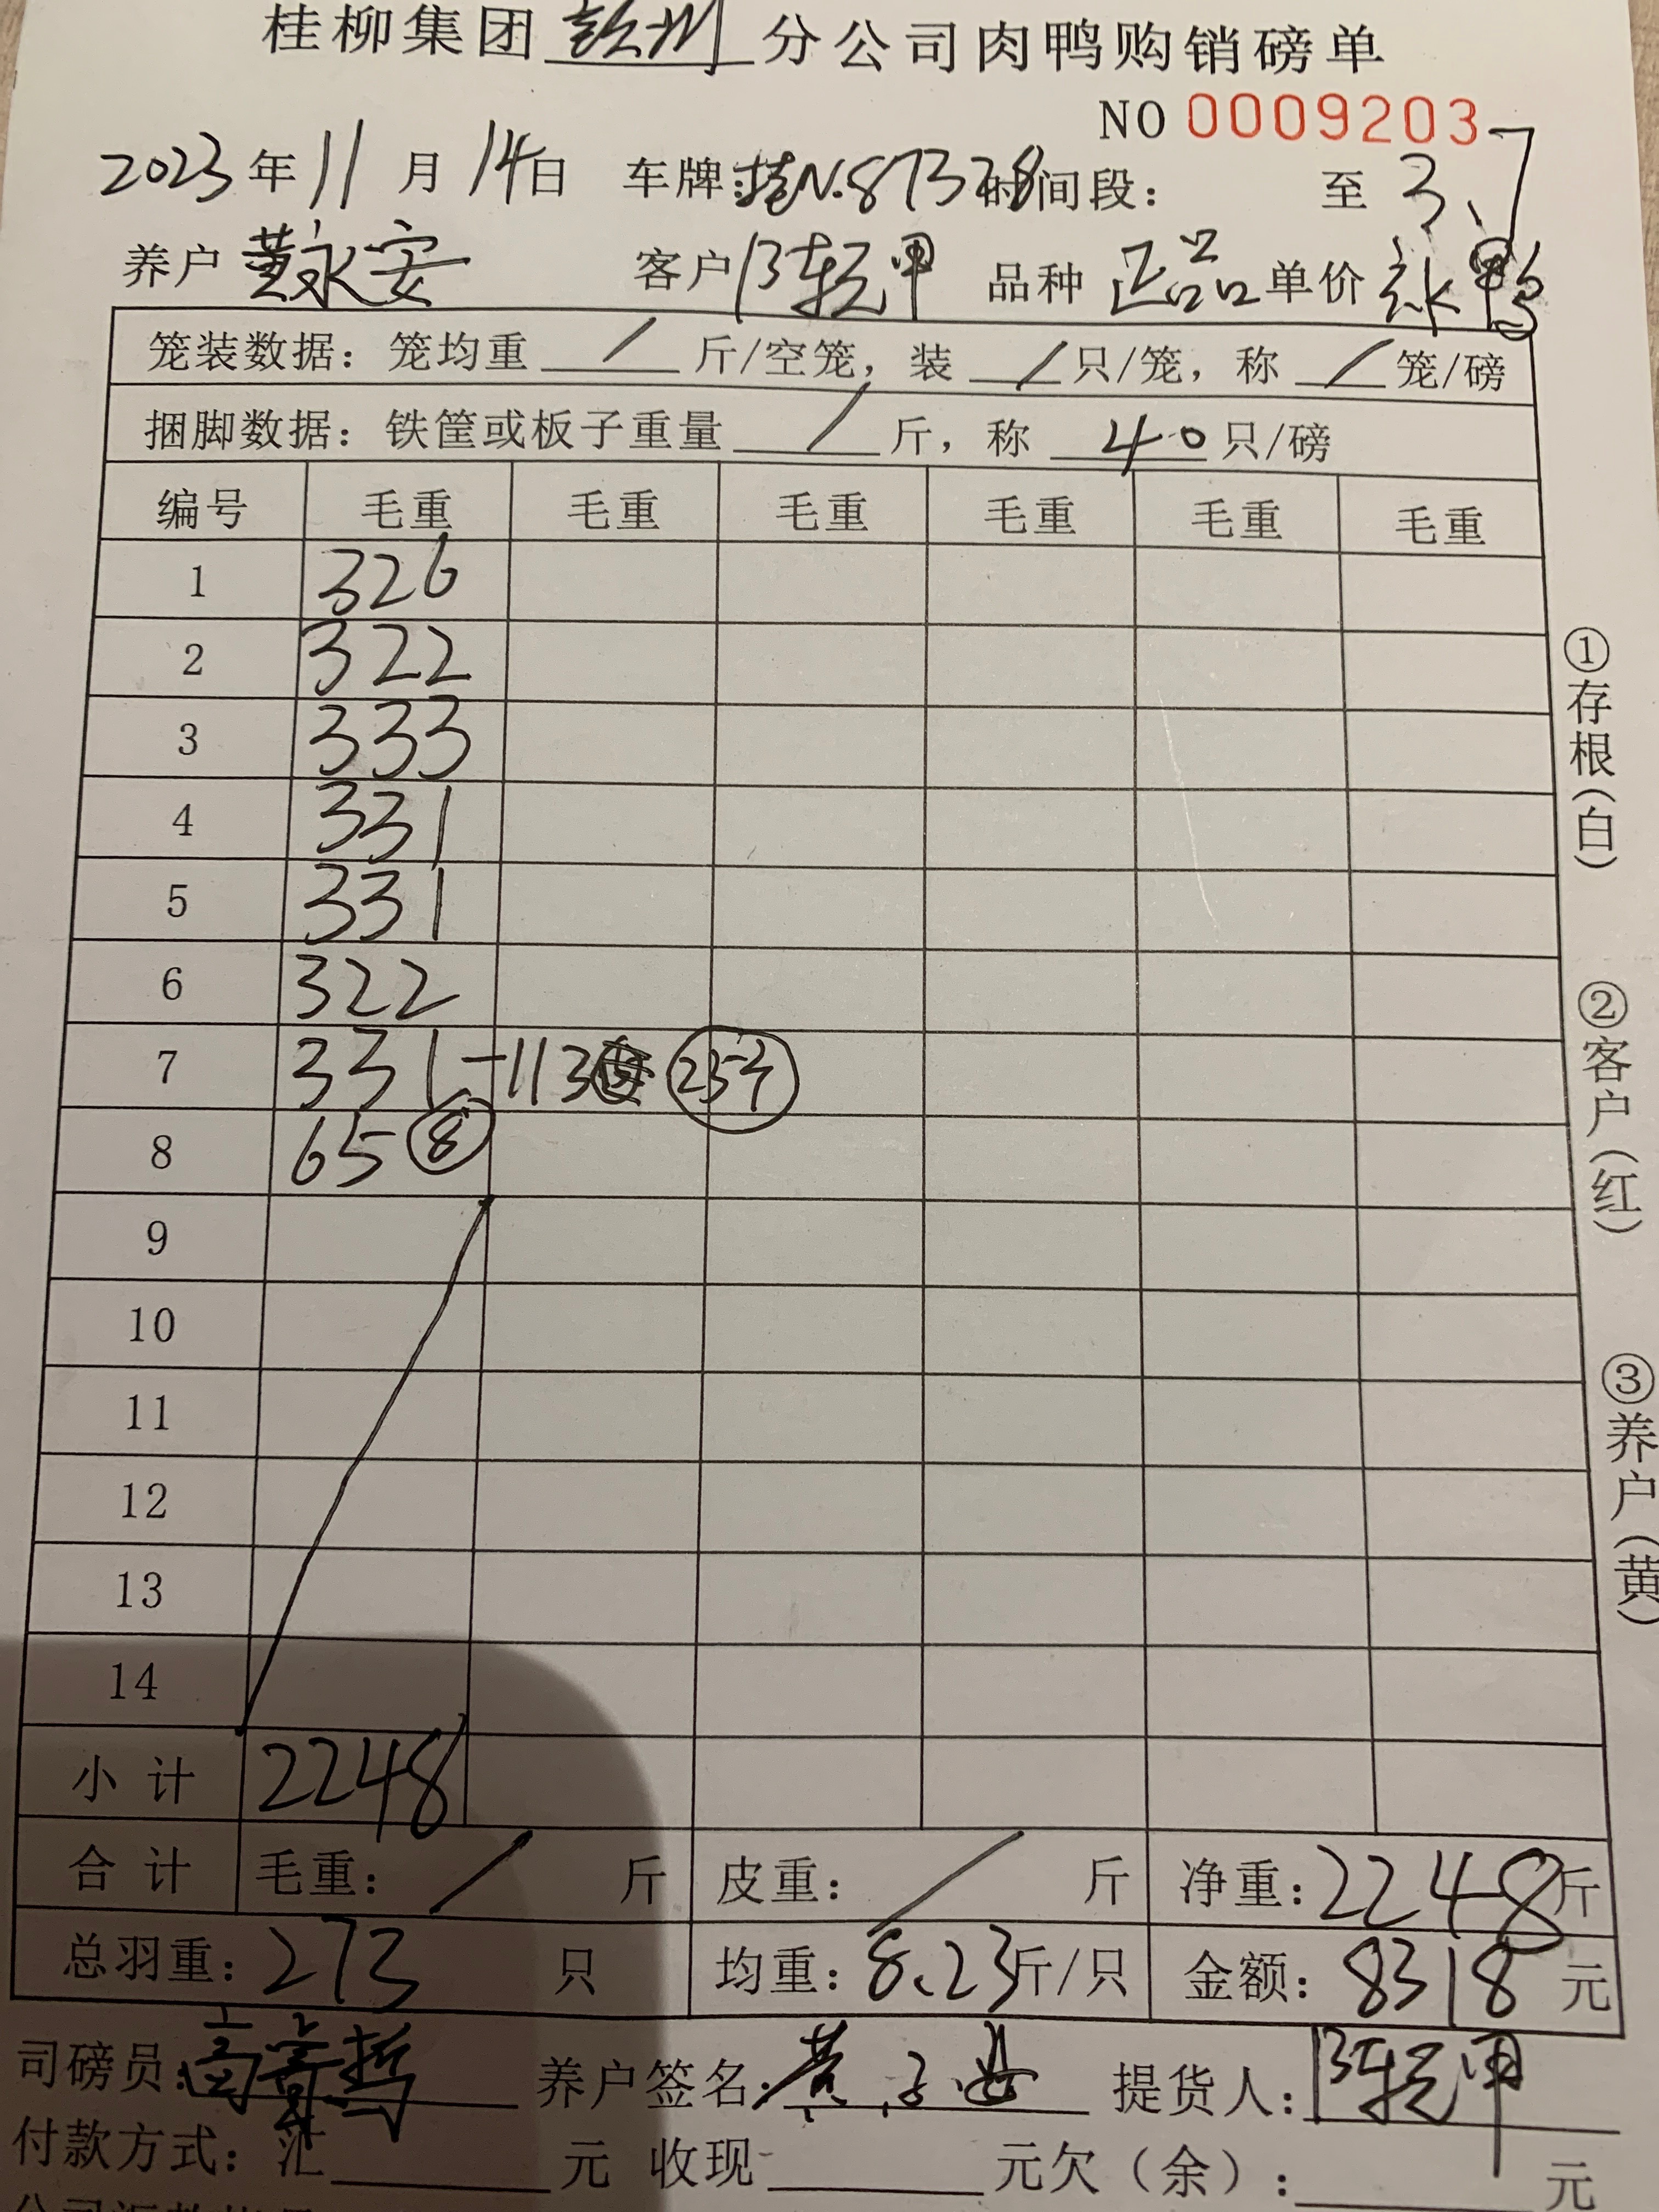 桂柳集团彭州分公司肉鸭购销磅单
NO 0009203
2023年11月14日 车牌:桂N.87328时间段: 至 3.7
养户 黄永安 客户 陈冠甲 品种 正品 单价 鸭
笼装数据: 笼均重 / 斤/空笼, 装 / 只/笼, 称 / 笼/磅
捆脚数据: 铁筐或板子重量 / 斤, 称 40 只/磅
编号 毛重 毛重 毛重 毛重 毛重 毛重
1 326
2 322
3 333
4 331
5 331
6 322
7 331-113 23只
8 65 8
9
10
11
12
13
14
小计 2248
合计 毛重: / 斤 皮重: / 斤 净重: 2248斤
总羽重: 273 只 均重: 8.23斤/只 金额: 8318 元
司磅员: 高 哲 养户签名: 黄 提货人: 陈冠甲
付款方式: 汇 元 收现 元欠(余): 元
①存根(白)
②客户(红)
③养户(黄)